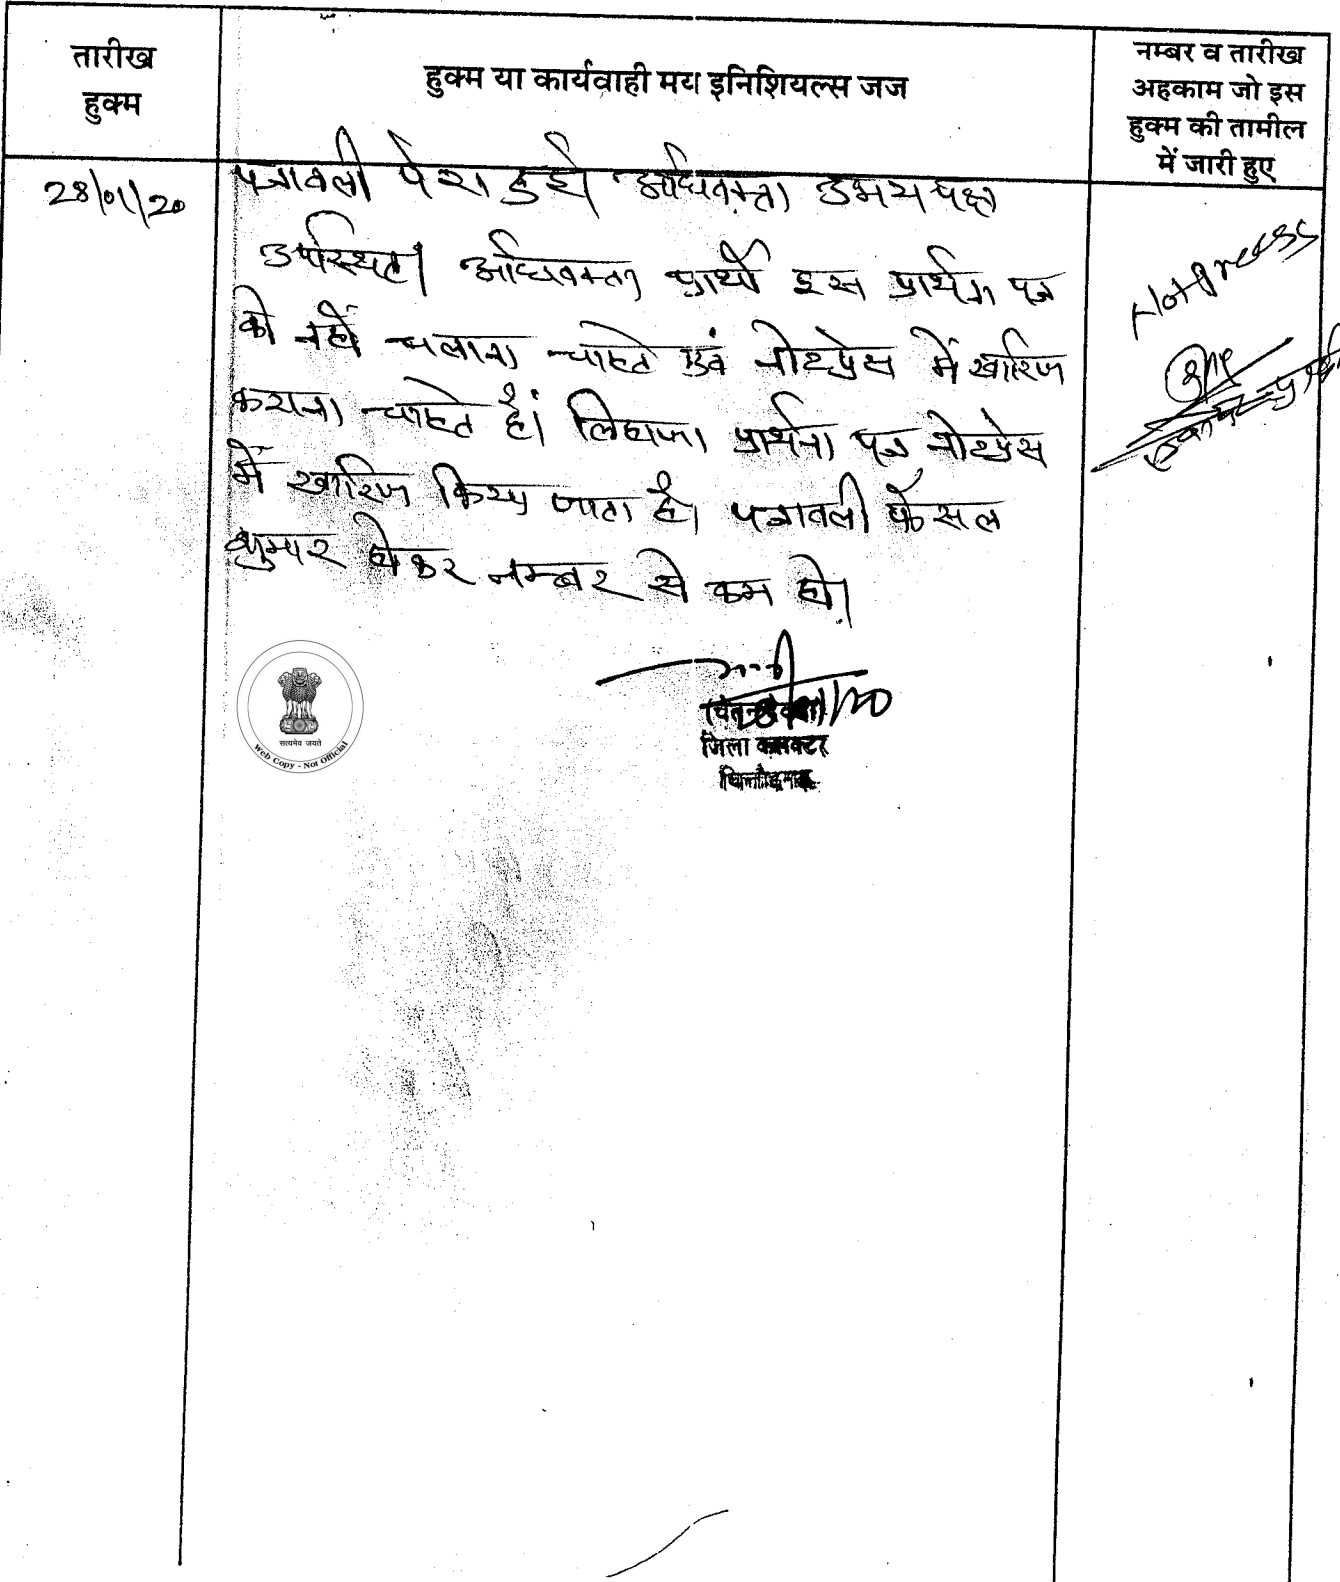 तारीख
हुक्म
हुक्म या कार्यवाही मय इनिशियल्स जज
नम्बर व तारीख
अहकाम जो इस
हुक्म की तामील
में जारी हुए
28/01/20
पत्रावली पेश हुई। अधिवक्ता उभयपक्ष
उपस्थित। अधिवक्ता प्रार्थी इस प्रार्थना पत्र
को नहीं चलाना चाहते एवं नोटप्रेस में खारिज
कराना चाहते है। लिहाजा प्रार्थना पत्र नोटप्रेस
में खारिज किया जाता है। पत्रावली फैसल
शुमार होकर नम्बर से कम हो।
Not Press
सत्यमेव जयते
Web Copy - Not Official
जिला कलक्टर
चित्तौड़गढ़